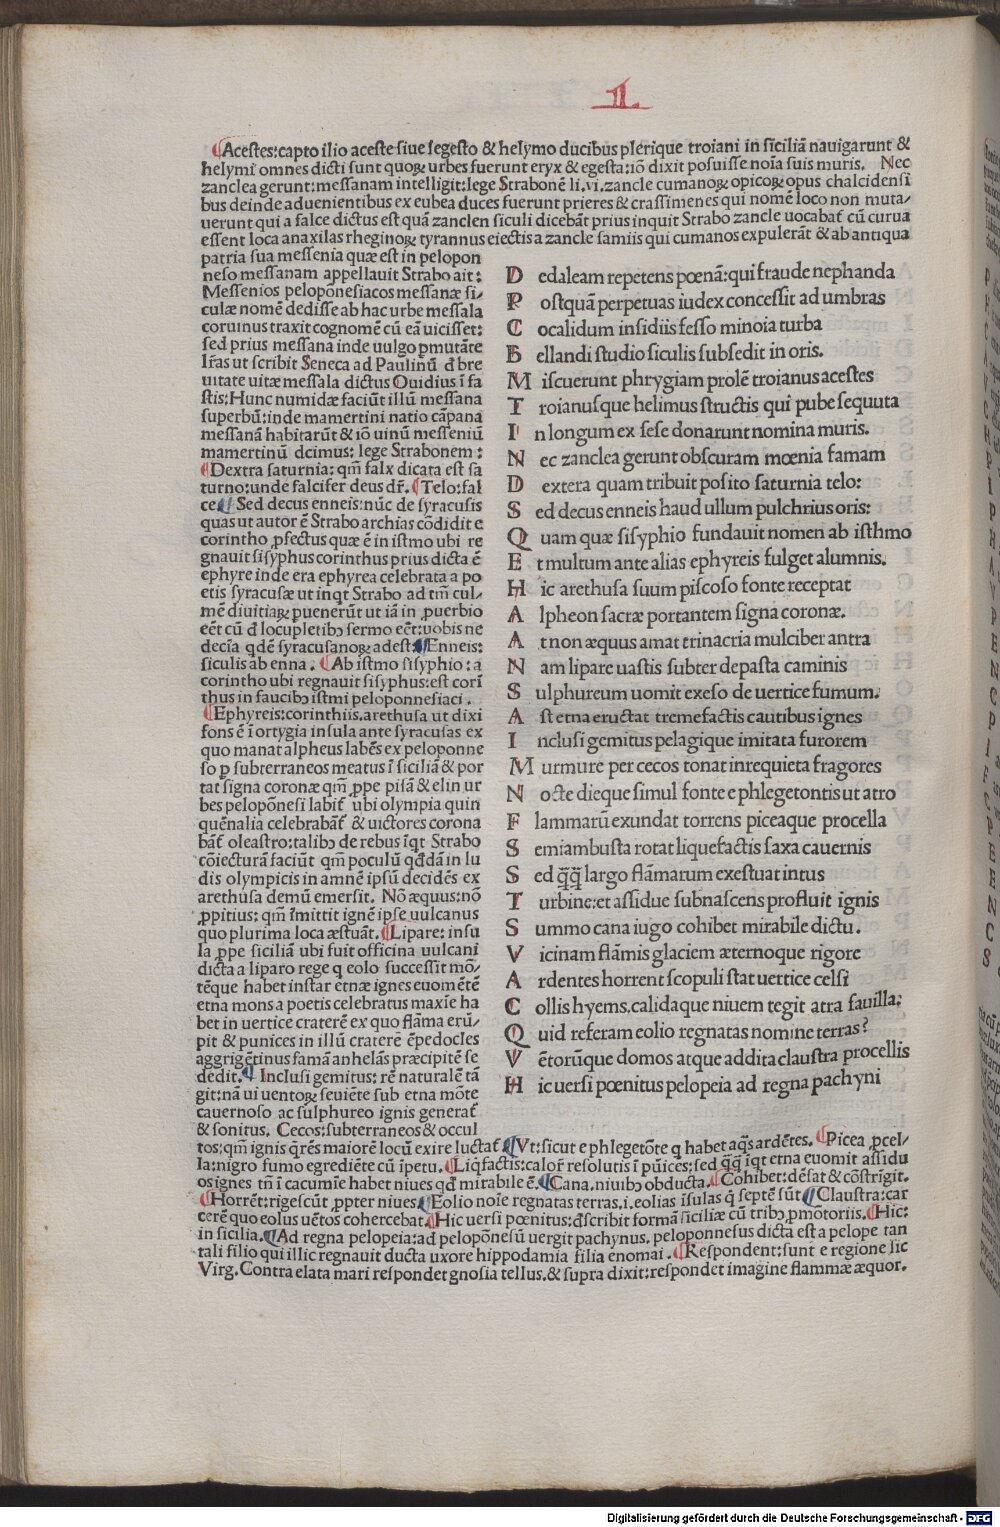 II.
Acestes: capto ilio aceste siue segesto & helymo ducibus plerique troiani in siciliā nauigarunt &
helymi omnes dicti sunt quoꝝ urbes fuerunt eryx & egesta: iō dixit posuisse noīa suis muris. Nec
zanclea gerunt: messanam intelligit: lege Strabonē li. vi. zancle cumanoꝝ opicoꝝ opus chalcidensi
bus deinde aduenientibus ex eubea duces fuerunt prieres & crassimenes qui nomē loco non muta/
uerunt qui a falce dictus est quā zanclen siculi dicebāt prius inquit Strabo zancle uocabat̄ cū curua
essent loca anaxilas rheginoꝝ tyrannus eiectis a zancle samiis qui cumanos expulerāt & ab antiqua
patria sua messenia quæ est in pelopon
neso messanam appellauit Strabo ait:
Messenios pelopōnesiacos messanæ si/
culæ nomē dedisse ab hac urbe messala
coruinus traxit cognomē cū eā uicisset:
sed prius messana inde uulgo pmutāte
lr̄as ut scribit Seneca ad Paulinū đ bre
uitate uitæ messala dictus Ouidius ī fa
stis: Hunc numidæ faciūt illū messana
superbū: inde mamertini natio cāpana
messanā habitarūt & iō uinū messeniū
mamertinū dcimus: lege Strabonem:
Dextra saturnia: qm̄ falx dicata est sa
turno: unde falcifer deus dr̄. Telo: fal
ce. Sed decus enneis: nūc de syracusis
quas ut autor ē Strabo archias cōdidit e
corintho ꝓfectus quæ ē in istmo ubi re
gnauit sisyphus corinthus prius dicta ē
ephyre inde era ephyrea celebrata a po
etis syracusæ ut inqt Strabo ad tm̄ cul/
mē diuitiaꝝ puenerūt ut iā in ꝓuerbio
eēt cū đ locupletibꝫ sermo eēt: uobis ne
decīa qdē syracusanoꝝ adest. Enneis:
siculis ab enna. Ab istmo sisyphio: a
corintho ubi regnauit sisyphus: est corī
thus in faucibꝫ istmi peloponnesiaci.
Ephyreis: corinthiis. arethusa ut dixi
fons ē ī ortygia insula ante syracusas ex
quo manat alpheus labēs ex peloponne
so ꝑ subterraneos meatus ī siciliā & por
tat signa coronæ qm̄ ꝓpe pisā & elin ur
bes pelopōnesi labit̄ ubi olympia quin
quēnalia celebrabāt̄ & uictores corona
bāt̄ oleastro: talibꝫ de rebus īqt Strabo
cōiecturā faciūt qm̄ poculū qđdā in lu
dis olympicis in amnē ipsū decidēs ex
arethusa demū emersit. Nō æquus: nō
ꝓpitius: qm̄ īmittit ignē ipse uulcanus
quo plurima loca æstuāt. Lipare: insu
la ꝓpe siciliā ubi fuit officina uulcani
dicta a liparo rege q eolo successit mō/
tēque habet instar etnæ ignes euomētē
etna mons a poetis celebratus maxīe ha
bet in uertice craterē ex quo flāma erū/
pit & punices in illū craterē ēpedocles
aggrigētinus famā anhelās præcipitē se
dedit. Inclusi gemitus: rē naturalē tā
git: nā ui uentoꝝ seuiēte sub etna mōte
cauernoso ac sulphureo ignis generat̄
& sonitus. Cecos: subterraneos & occul
tos: qm̄ ignis q̄rēs maiorē locū exire luctat̄. Vt: sicut e phlegetōte q habet aq̄s ardētes. Picea ꝓcel/
la: nigro fumo egrediēte cū īpetu. Liq̄factis: calor̄ resolutis ī pūices: sed q̄q̄ īqt etna euomit assidu
os ignes tn̄ ī cacumīe habet niues qđ mirabile ē. Cana. niuibꝫ obducta. Cohibet: dēsat & cōstrīgit.
Horrēt: rigescūt ꝓpter niues. Eolio noīe regnatas terras. i. eolias īsulas q̄ septē sūt. Claustra: car
cerē quo eolus uētos cohercebat. Hic uersi pœnitus: đscribit formā siciliæ cū tribꝫ ꝓmōtoriis. Hic:
in sicilia. Ad regna pelopeia: ad pelopōnesū uergit pachynus. peloponnesus dicta est a pelope tan
tali filio qui illic regnauit ducta uxore hippodamia filia enomai. Respondent: sunt e regione sic
Virg. Contra elata mari respondet gnosia tellus. & supra dixit: respondet imagine flammæ æquor.
D edaleam repetens pœnā: qui fraude nephanda
P ostquā perpetuas iudex concessit ad umbras
C ocalidum insidiis fesso minoia turba
B ellandi studio siculis subsedit in oris.
M iscuerunt phrygiam prolē troianus acestes
T roianusque helimus structis qui pube sequuta
I n longum ex sese donarunt nomina muris.
N ec zanclea gerunt obscuram mœnia famam
D extera quam tribuit posito saturnia telo:
S ed decus enneis haud ullum pulchrius oris:
Q uam quæ sisyphio fundauit nomen ab isthmo
E t multum ante alias ephyreis fulget alumnis.
H ic arethusa suum piscoso fonte receptat
A lpheon sacræ portantem signa coronæ.
A t non æquus amat trinacria mulciber antra
N am lipare uastis subter depasta caminis
S ulphureum uomit exeso de uertice fumum.
A st etna eructat tremefactis cautibus ignes
I nclusi gemitus pelagique imitata furorem
M urmure per cecos tonat inrequieta fragores
N octe dieque simul fonte e phlegetontis ut atro
F lammarū exundat torrens piceaque procella
S emiambusta rotat liquefactis saxa cauernis
S ed q̄q̄ largo flāmarum exestuat intus
T urbine: et assidue subnascens profluit ignis
S ummo cana iugo cohibet mirabile dictu.
V icinam flāmis glaciem æternoque rigore
A rdentes horrent scopuli stat uertice celsi
C ollis hyems. calidaque niuem tegit atra fauilla:
Q uid referam eolio regnatas nomine terras?
V ētorūque domos atque addita claustra procellis
H ic uersi pœnitus pelopeia ad regna pachyni
Digitalisierung gefördert durch die Deutsche Forschungsgemeinschaft - DFG